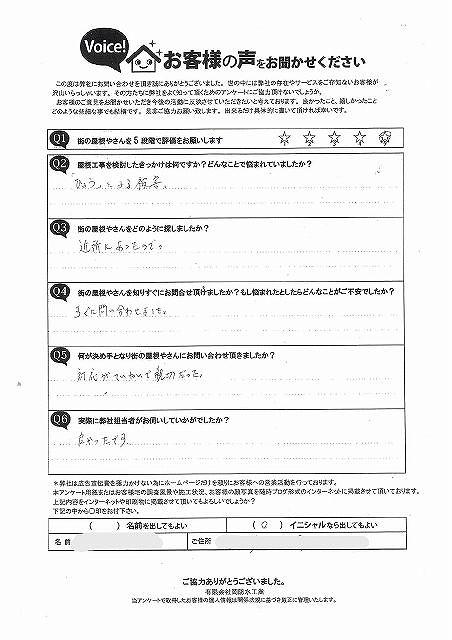 Voice! お客様の声をお聞かせください
この度は弊社にお問い合わせを頂き誠にありがとうございました。世の中には弊社の存在やサービスをご存知ないお客様が
沢山いらっしゃいます。その方たちに弊社をよく知って頂くためのアンケートにご協力頂けないでしょうか。
お客様のご意見をお聞かせいただき今後の活動に反映させていただきたいと考えております。良かったこと、嬉しかったこと
どのような些細な事でも結構です。是非ご協力お願い致します。出来るだけ具体的に書いて頂ければ幸いです。
Q1 街の屋根やさんを5段階で評価をお願いします ☆ ☆ ☆ ☆ ☆
Q2 屋根工事を検討したきっかけは何ですか？どんなことで悩まれていましたか？
「ひょう」による被害。
Q3 街の屋根やさんをどのように探しましたか？
近所にあったので。
Q4 街の屋根やさんを知りすぐにお問合せ頂けましたか？もし悩まれたとしたらどんなことがご不安でしたか？
すぐに問い合わせました。
Q5 何が決め手となり街の屋根やさんにお問い合わせ頂きましたか？
対応がていねいで親切だった。
Q6 実際に弊社担当者がお伺いしていかがでしたか？
良かったです
＊弊社は広告宣伝費を極力かけない為にホームページだけを頼りにお客様への営業活動を行っております。
本アンケート用紙またはお客様宅の調査風景や施工状況、お客様の顔写真を随時ブログ形式のインターネットに掲載させて頂いております。
上記内容をインターネットや印刷物に掲載させて頂いてもよろしいでしょうか？
下記の中から〇印をお付下さい。
（　　）名前を出してもよい （ ○ ）イニシャルなら出してもよい
名 前 ご住所
ご協力ありがとうございました。
有限会社岡防水工業
当アンケートで取得したお客様の個人情報は関係法規に基づき厳正に管理いたします。